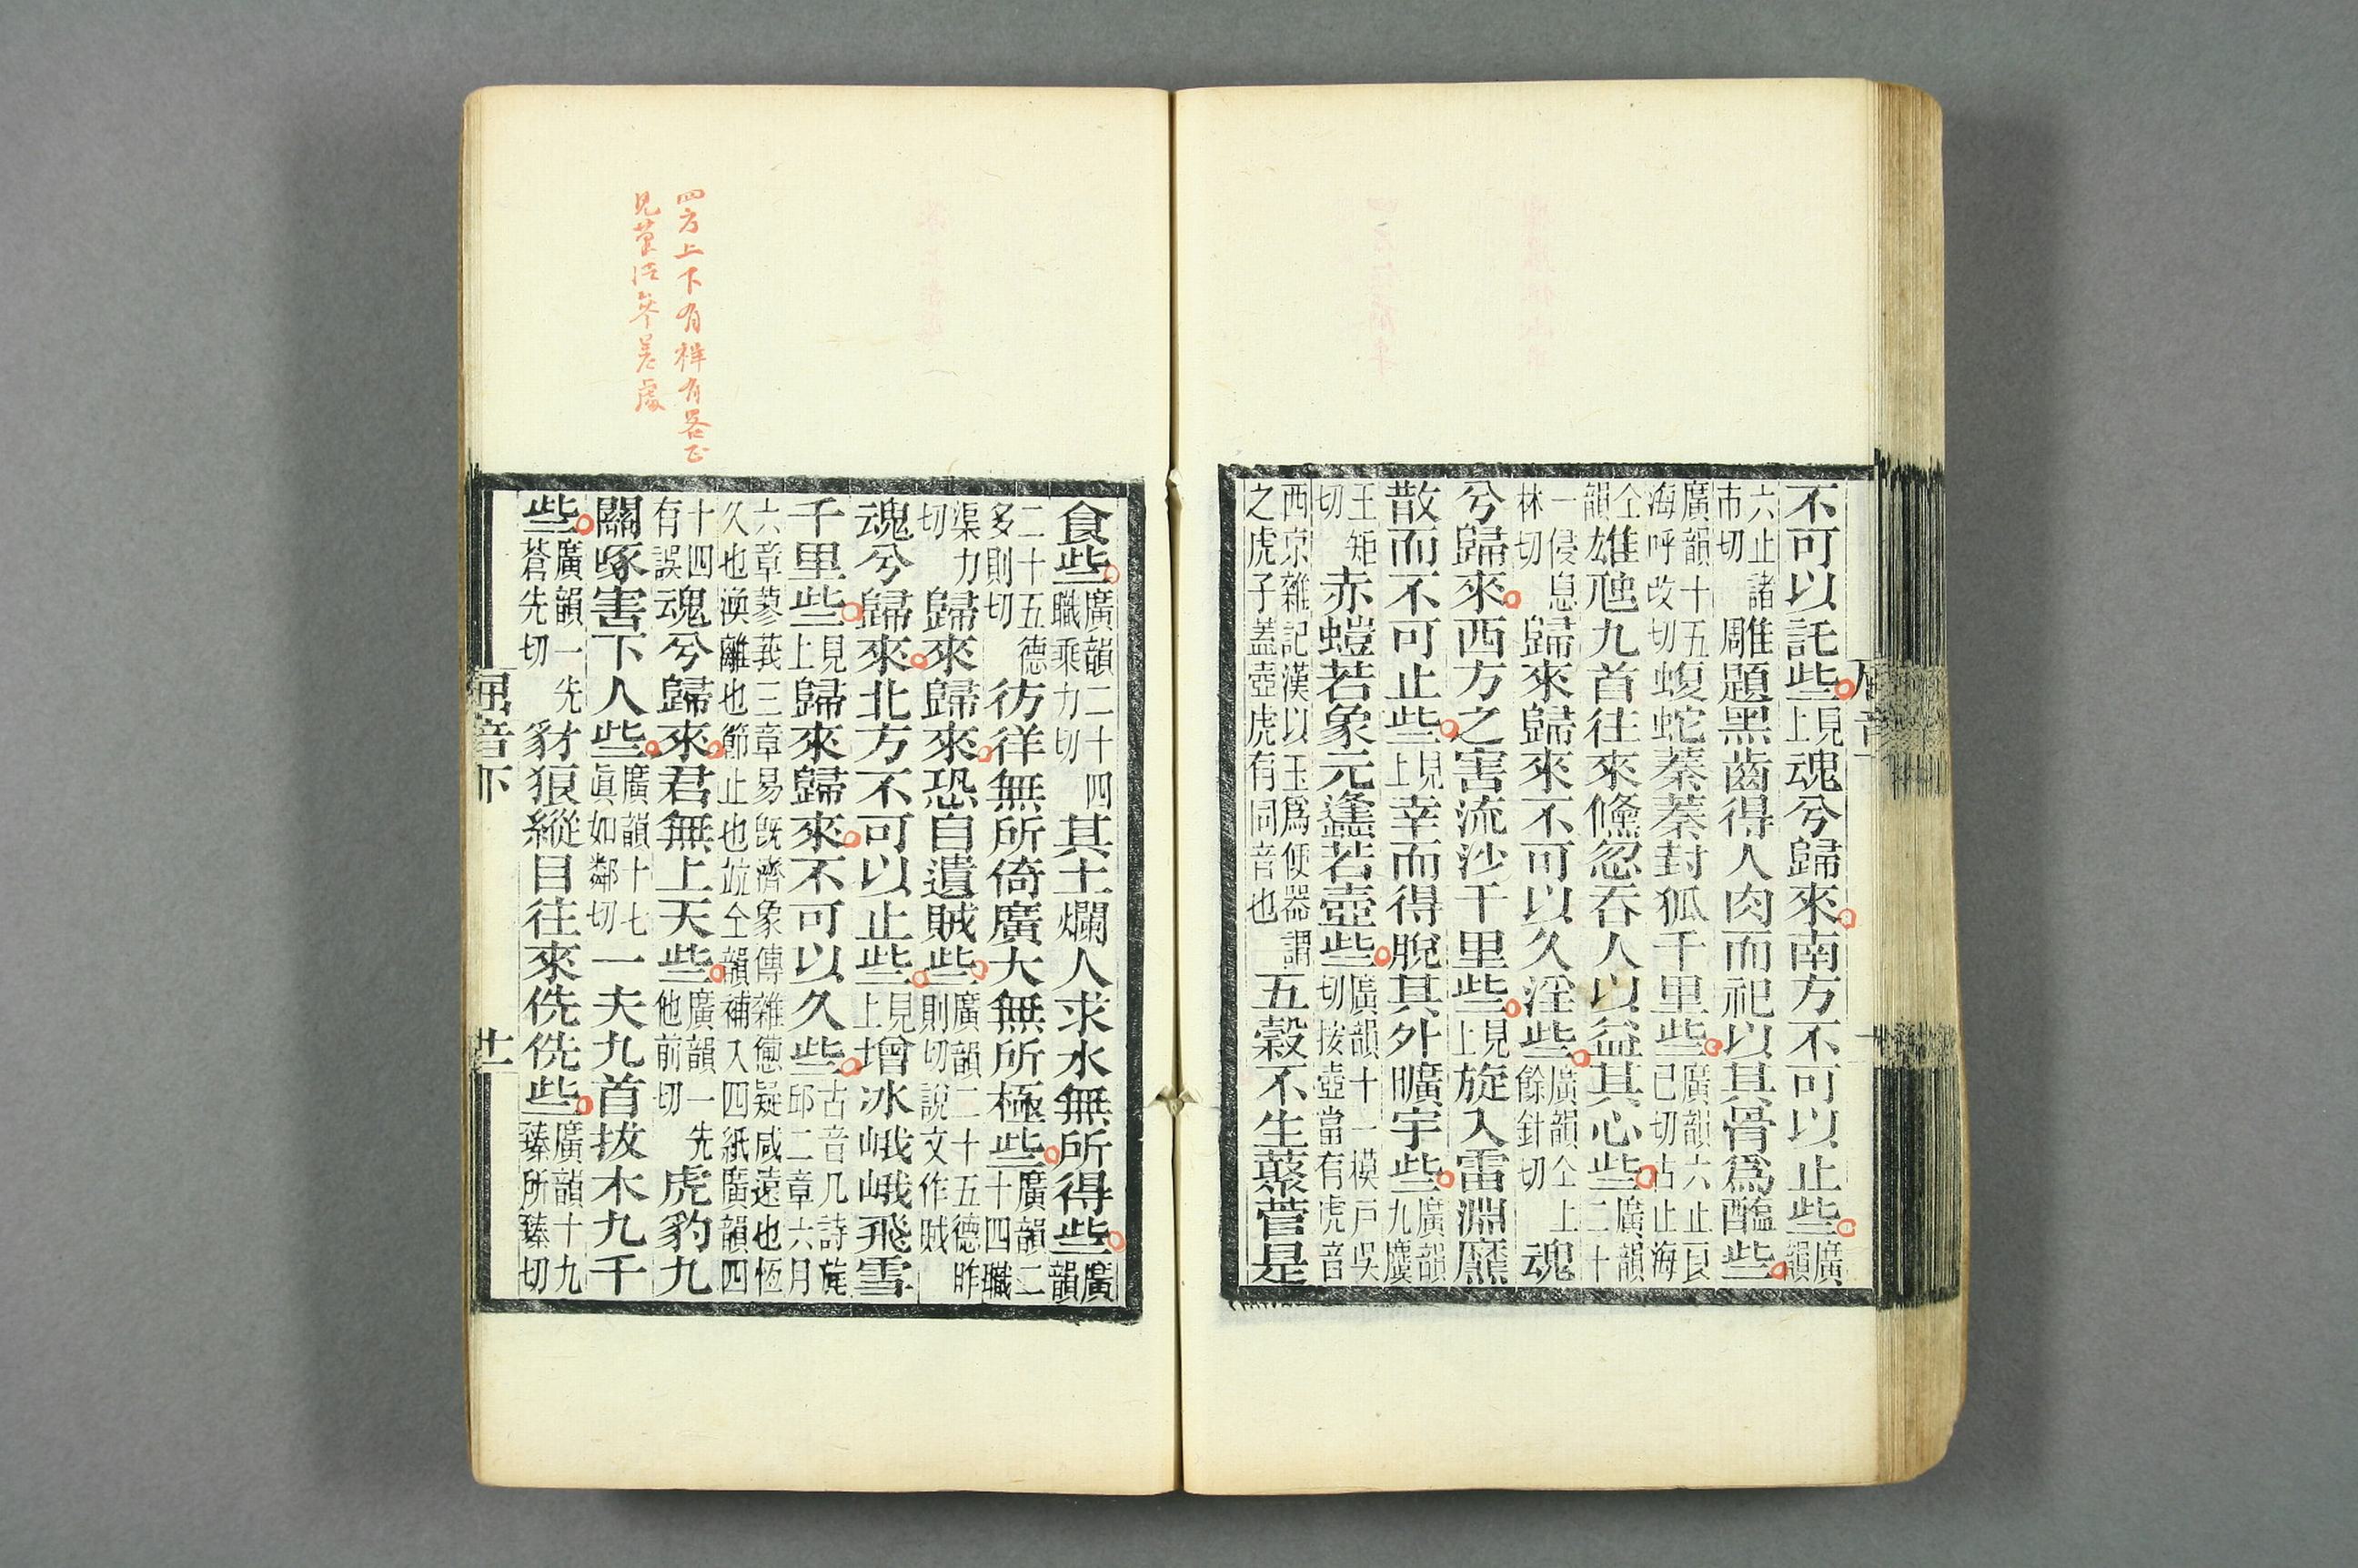 不可以託些見上魂兮歸來南方不可以止些廣韻
六止諸市切雕題黑齒得人肉而祀以其骨爲醢些
廣韻十五海呼改切蝮蛇蓁蓁封狐千里些廣韻六止良已切古止海
仝韻雄虺九首往來儵忽吞人以益其心些廣韻二十
一侵息林切歸來歸來不可以久淫些廣韻仝上餘針切魂
兮歸來西方之害流沙千里些見上旋入雷淵靡
散而不可止些見上幸而得脫其外曠宇些廣韻九麌
王矩切赤螘若象元蠭若壺些廣韻十一模戸吳切按壺當有虎音
西京雜記漢以玉爲便器謂之虎子蓋壺虎有同音也五穀不生藂菅是
四方上下有祥有畧正
見筆法參差處
食些廣韻二十四職乘力切其土爛人求水無所得些廣韻
二十五德多則切彷徉無所倚廣大無所極些廣韻二十四職
渠力切歸來歸來恐自遺賊些廣韻二十五德昨則切說文作賊
魂兮歸來北方不可以止些見上增冰峨峨飛雪
千里些見上歸來歸來不可以久些古音几詩旄邱二章六月
六章蓼莪三章易旣濟象傳雜疑咸遠也恆久也渙離也節止也竝仝韻補入四紙廣韻四
十四有誤魂兮歸來君無上天些廣韻一先他前切虎豹九
關啄害下人些廣韻十七眞如鄰切一夫九首拔木九千
些廣韻一先蒼先切豺狼縱目往來侁侁些廣韻十九臻所臻切
屈音下 廿一